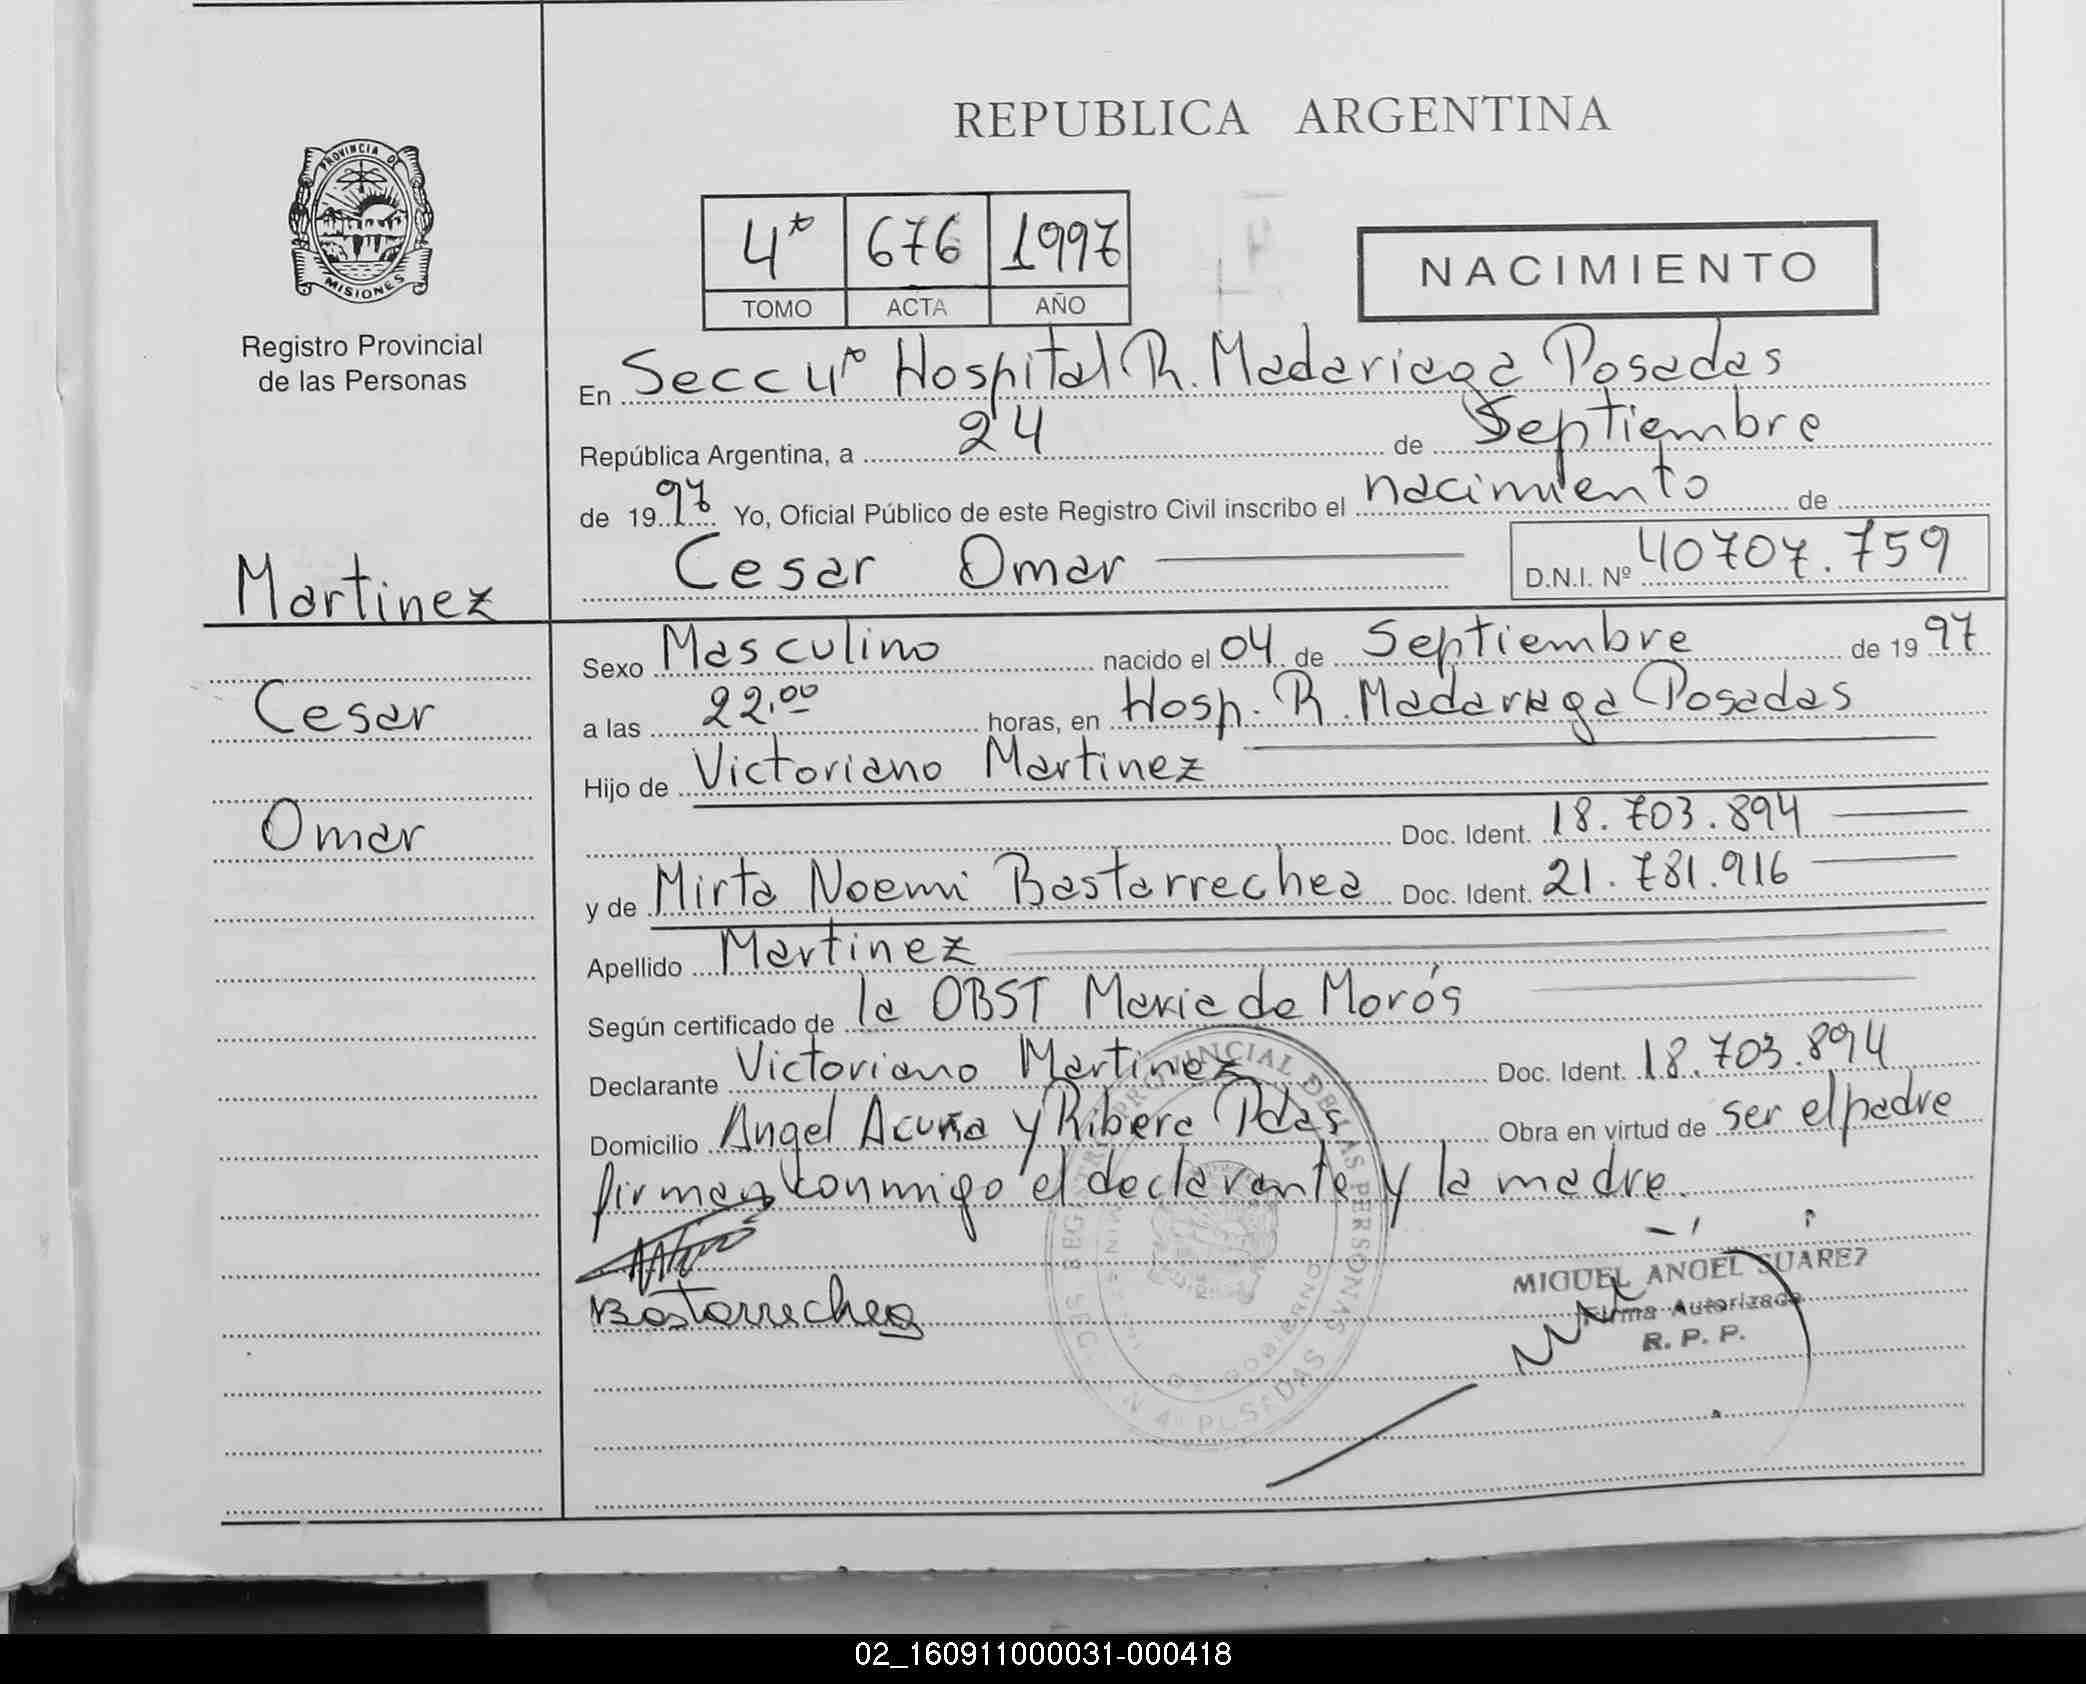 REPUBLICA ARGENTINA
PROVINCIA DE
MISIONES
Registro Provincial
de las Personas
4º 676 1997
TOMO ACTA AÑO
NACIMIENTO
En Secc 4º Hospital R. Madariaga Posadas
República Argentina, a 24 de Septiembre
de 1997 Yo, Oficial Público de este Registro Civil inscribo el nacimiento de
Cesar Omar D.N.I. Nº 40707.759
Martinez
Cesar
Omar
Sexo Masculino nacido el 04 de Septiembre de 1997
a las 22.00 horas, en Hosp. R. Madariaga Posadas
Hijo de Victoriano Martinez
Doc. Ident. 18.703.894
y de Mirta Noemi Bastarrechea Doc. Ident. 21.781.916
Apellido Martinez
Según certificado de la OBST Maria de Morós
Declarante Victoriano Martinez Doc. Ident. 18.703.894
Domicilio Angel Acuña y Ribera Pdas Obra en virtud de ser el padre
firman conmigo el declarante y la madre.
Bastarrechea
MIGUEL ANGEL SUAREZ
Firma Autorizada
R. P. P.
02_160911000031-000418